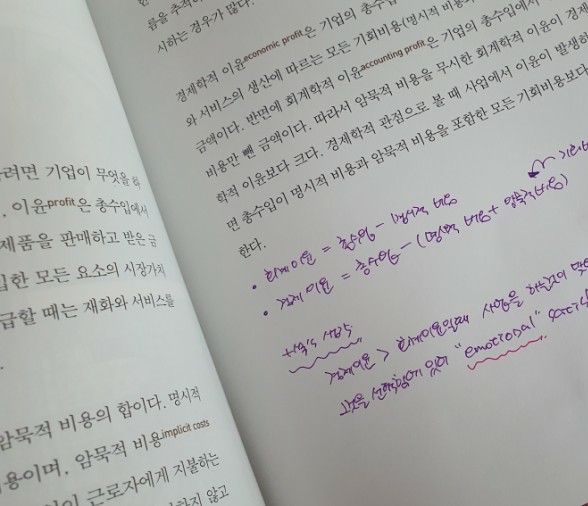 려면 기업이 무엇을 하
. 이윤profit은 총수입에서
제품을 판매하고 받은 금
입한 모든 요소의 시장가치
급할 때는 재화와 서비스를
암묵적 비용의 합이다. 명시적
용이며, 암묵적 비용implicit costs
이 근로자에게 지불하는
하지 않고
름을 추적하
시하는 경우가 많다.
경제학적 이윤economic profit은 기업의 총수입
와 서비스의 생산에 따르는 모든 기회비용(명시적 비용과
금액이다. 반면에 회계학적 이윤accounting profit은 기업의 총수입에서
비용만 뺀 금액이다. 따라서 암묵적 비용을 무시한 회계학적 이윤이 경제
학적 이윤보다 크다. 경제학적 관점으로 볼 때 사업에서 이윤이 발생하
면 총수입이 명시적 비용과 암묵적 비용을 포함한 모든 기회비용보다
한다.
• 회계이윤 = 총수입 - 명시적 비용
• 경제이윤 = 총수입 - (명시적 비용 + 암묵적 비용)
경제이윤 > 회계이윤일때 사업을 하는것이
"emotional"